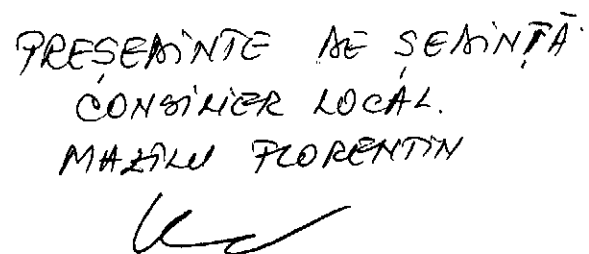 PREȘEDINTE DE ȘEDINȚĂ
CONSILIER LOCAL.
MAZILU FLORENTIN